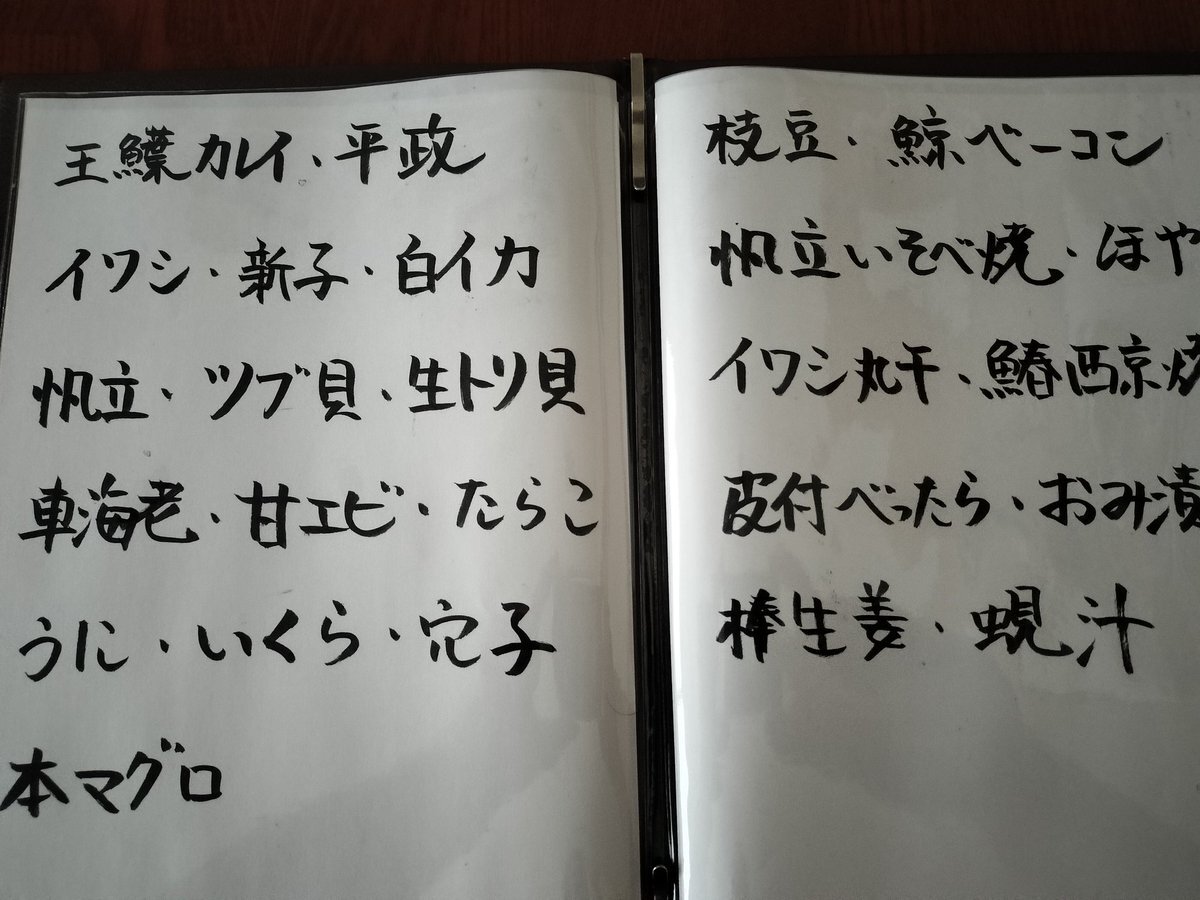 王鰈カレイ、平政
イワシ・新子・白イカ
帆立・ツブ貝・生トリ貝
車海老・甘エビ・たらこ
うに・いくら・穴子
本マグロ
枝豆・鯨ベーコン
帆立いそべ焼・ほや
イワシ丸干・鰆西京焼
皮付べったら・おみ漬
棒生姜・蜆汁